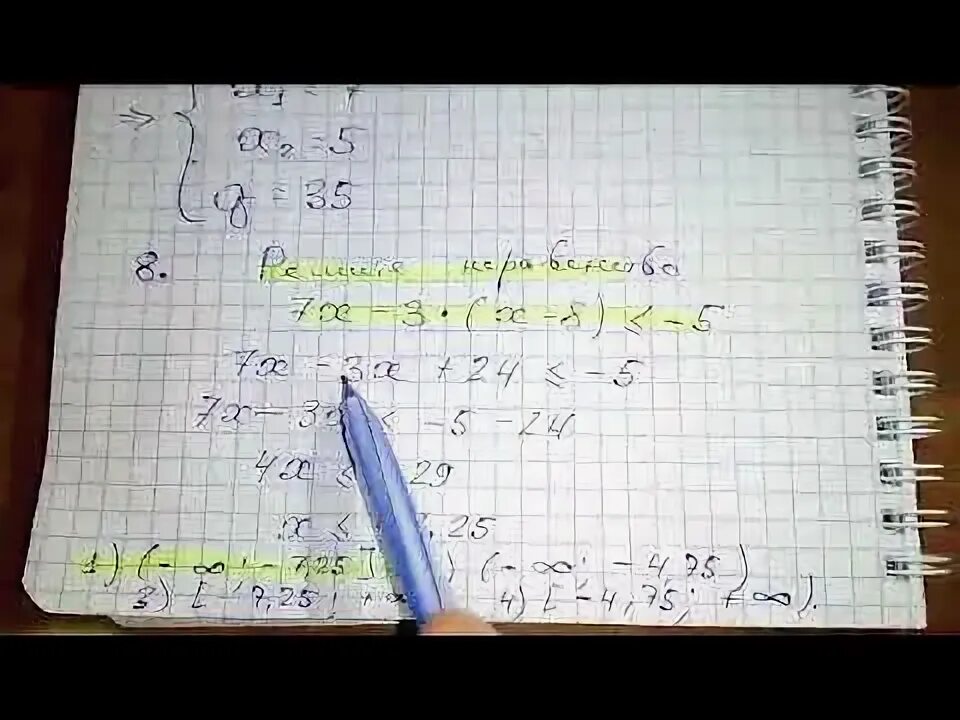 x₂ = 5
y = 35
8. Решите неравенство
7x - 3 · (x - 8) ≤ -5
7x - 3x + 24 ≤ -5
7x - 3x ≤ -5 - 24
4x ≤ 29
x ≤ ,25
1) (-∞; -7,25] ) (-∞; -4,75)
3) [-7,25; +∞ 4) [-4,75; +∞).